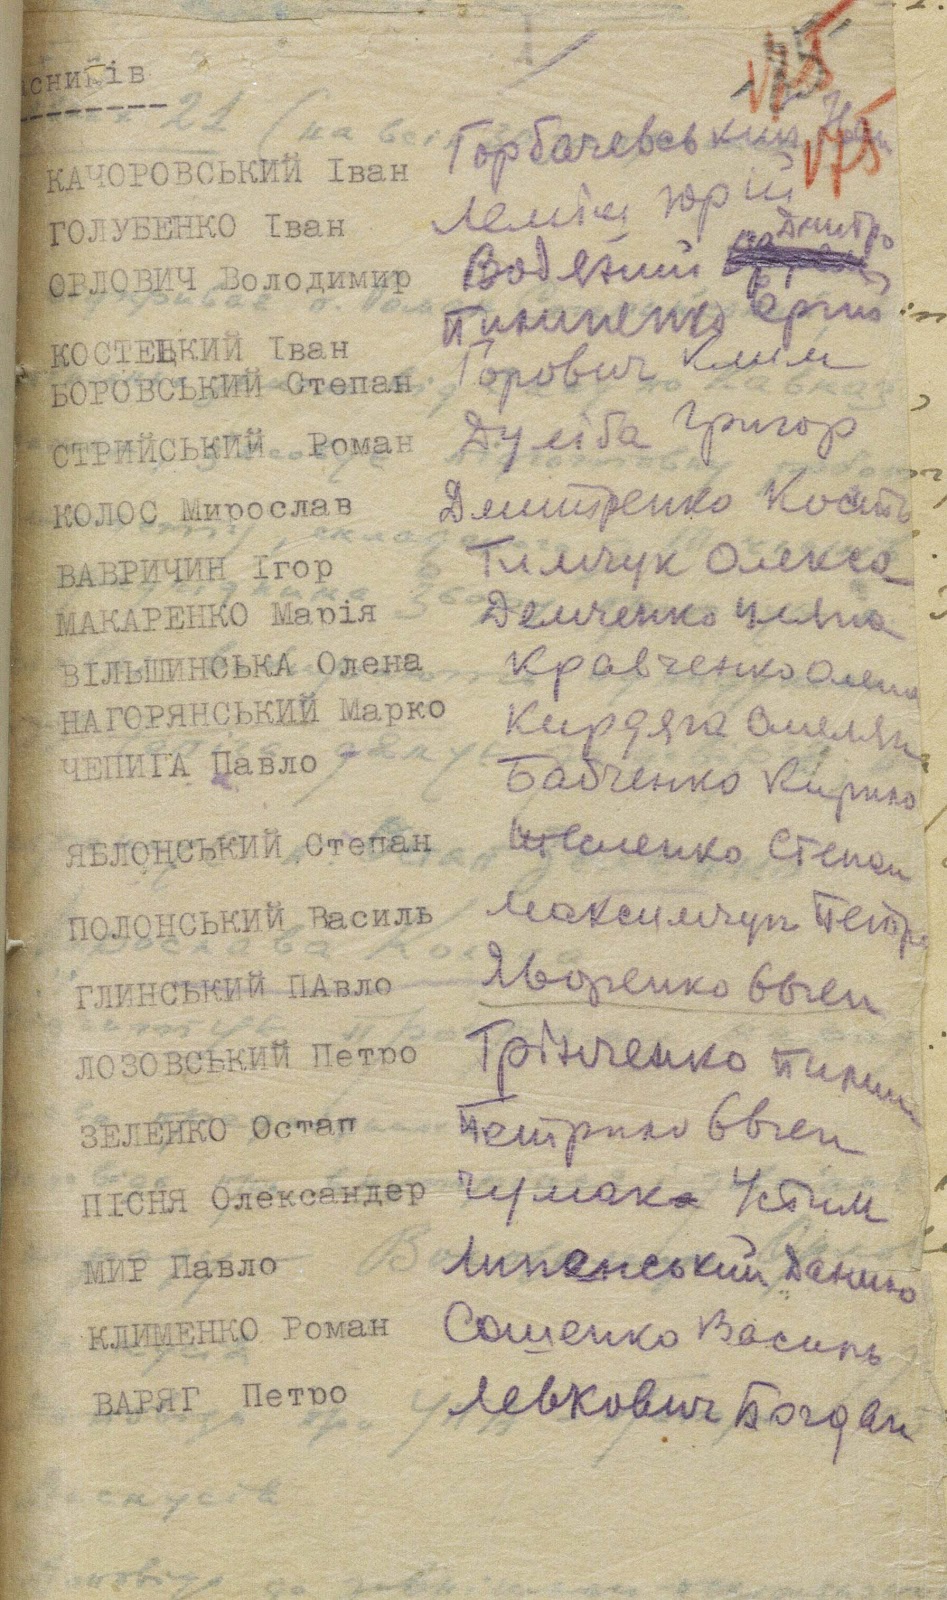 сників
175
175
КАЧОРОВСЬКИЙ Іван Горбачевський
ГОЛУБЕНКО Іван Лемїш Юрій
ОРЛОВИЧ Володимир Водяний Дмитро
Пилипенко Сергій
КОСТЕЦКИЙ Іван Горович Клим
БОРОВСЬКИЙ Степан
СТРИЙСЬКИЙ Роман Дуліба Григор
КОЛОС Мирослав Дмитренко Кость
ВАВРИЧИН Ігор Тимчук Олекса
МАКАРЕНКО Марія Демченко Уляна
ВІЛЬШИНСЬКА Олена Кравченко Олена
НАГОРЯНСЬКИЙ Марко Кирдяга Омелян
ЧЕПИГА Павло Бабченко Кирило
ЯБЛОНСЬКИЙ Степан Степан
ПОЛОНСЬКИЙ Василь Максимчук Петро
ГЛИНСЬКИЙ ПАвло Яворенко Євген
ЛОЗОВСЬКИЙ Петро Грінченко Пилип
ЗЕЛЕНКО Остап Петрило Євген
ПІСНЯ Олександер Чумак Устим
МИР Павло Липенський Данило
КЛИМЕНКО Роман Сошенко Василь
ВАРЯГ Петро Левкович Богдан